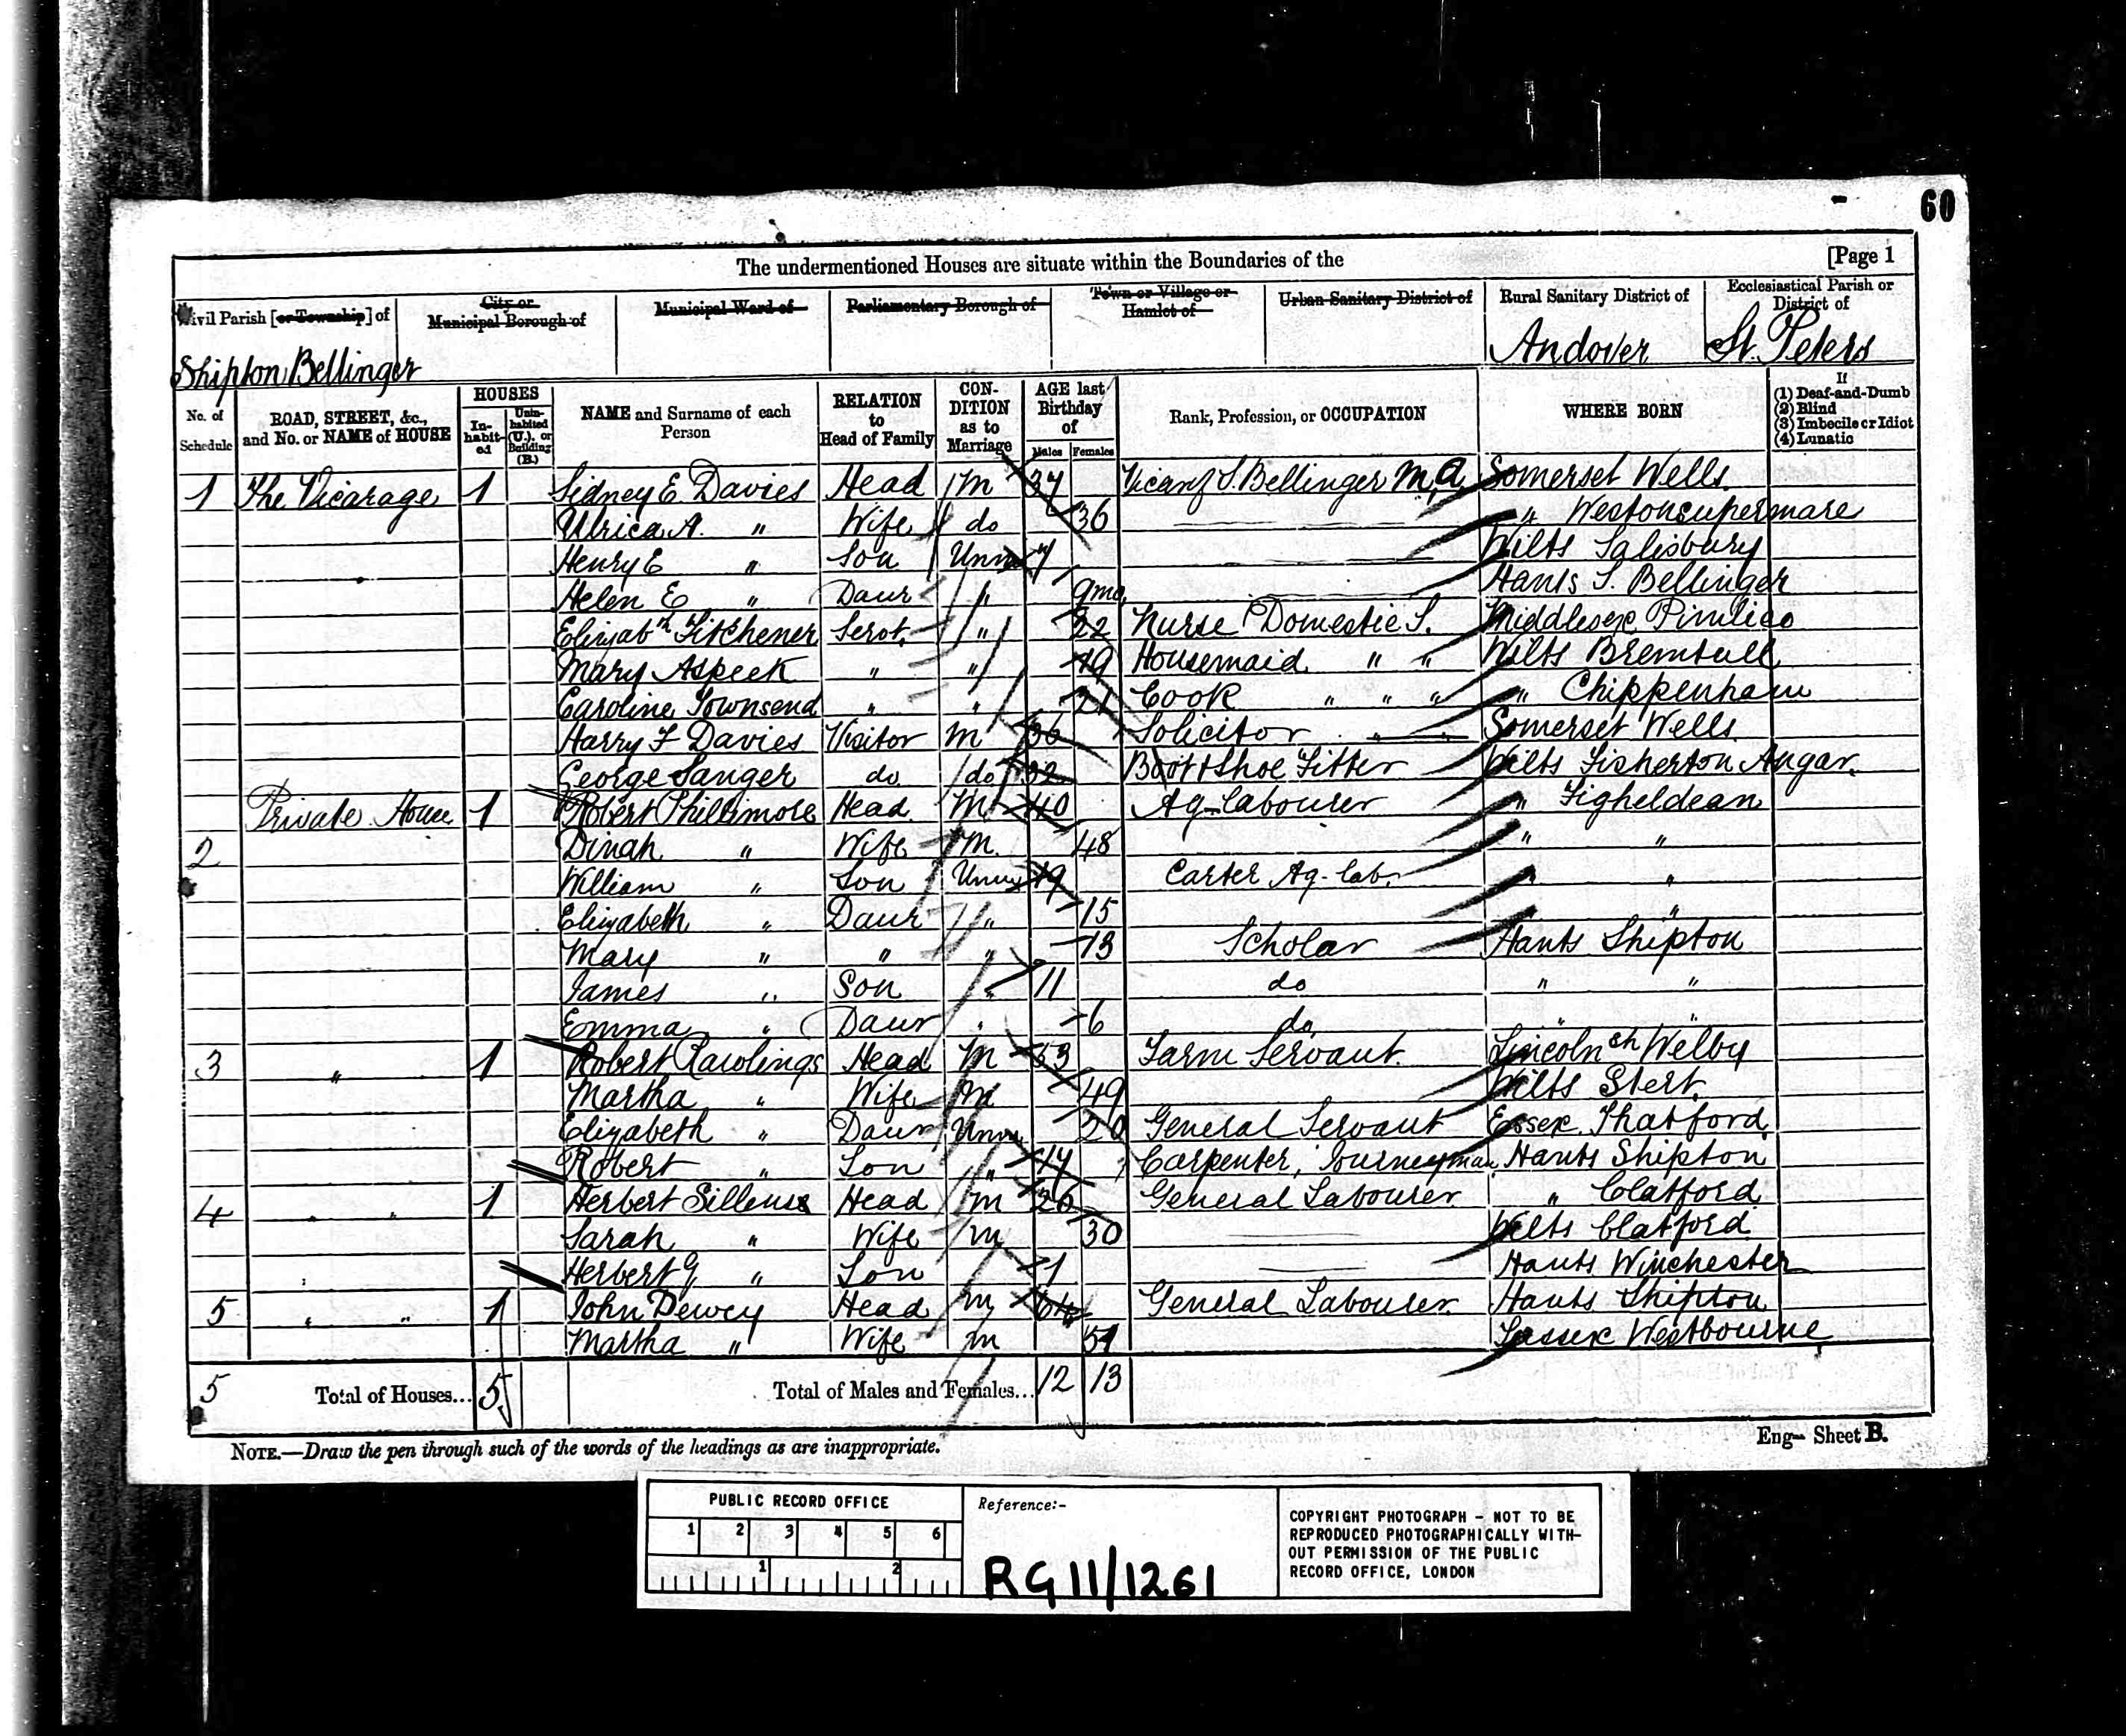 60
The undermentioned Houses are situate within the Boundaries of the [Page 1
Civil Parish [or Township] of City or Municipal Borough of Municipal Ward of Parliamentary Borough of Town or Village or Hamlet of Urban Sanitary District of Rural Sanitary District of Ecclesiastical Parish or District of
Shipton Bellinger Andover St. Peters
No. of Schedule ROAD, STREET, &c., and No. or NAME of HOUSE HOUSES In-habit-ed Unin-habited (U.), or Building (B.) NAME and Surname of each Person RELATION to Head of Family CON-DITION as to Marriage AGE last Birthday of Males Females Rank, Profession, or OCCUPATION WHERE BORN If (1) Deaf-and-Dumb (2) Blind (3) Imbecile or Idiot (4) Lunatic
1 The Vicarage 1 Sidney E Davies Head M 37 Vicar of S. Bellinger M.A. Somerset Wells
Ulrica A. " Wife do 36 " Westonsupermare
Henry E " Son Unm 7 Wilts Salisbury
Helen E " Daur " 9mo Hants S. Bellinger
Elizabth Titchener Servt. " 22 Nurse Domestic S. Middlesex Pimlico
Mary Aspeek " " 19 Housemaid " " Wilts Bremhill
Caroline Townsend " " 21 Cook " " " " Chippenham
Harry F Davies Visitor M 36 Solicitor Somerset Wells
George Sanger do do 32 Boot & Shoe Fitter Wilts Fisherton Angar.
Private House 1 Robert Phillimore Head M 40 Ag-labourer " Figheldean
2 Dinah " Wife M. 48 " "
William " Son Unm 19 Carter Ag-lab. " "
Elizabeth " Daur " 15 " "
Mary " " " 13 Scholar Hants Shipton
James " Son " 11 do " "
Emma " Daur " 6 do " "
3 " 1 Robert Rawlings Head M 53 Farm Servant. Lincolnsh Welby
Martha " Wife M 49 Wilts Stert.
Elizabeth " Daur Unm 20 General Servant Essex Thatford
Robert " Son " 17 Carpenter, Journeyman Hants Shipton
4 " " 1 Herbert Sillence Head M 26 General Labourer " Clatford
Sarah " Wife M 30 Wilts Clatford
Herbert G " Son 1 Hants Winchester
5 " " 1 John Dewey Head M 64 General Labourer Hants Shipton
Martha " Wife M 51 Sussex Westbourne
5 Total of Houses... 5 Total of Males and Females... 12 13
NOTE.—Draw the pen through such of the words of the headings as are inappropriate. Eng— Sheet B.
PUBLIC RECORD OFFICE
1 2 3 4 5 6
1 2
Reference:-
RG 11/1261
COPYRIGHT PHOTOGRAPH - NOT TO BE
REPRODUCED PHOTOGRAPHICALLY WITH-
OUT PERMISSION OF THE PUBLIC
RECORD OFFICE, LONDON